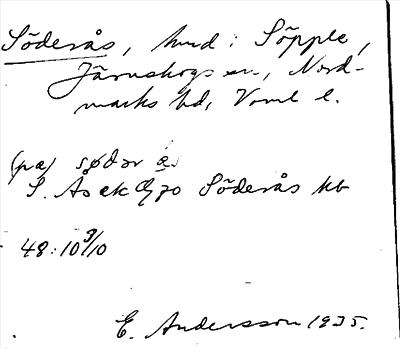 Söderås, hmd i Söpple,
Järnskogs sn., Nord-
marks hd, Vrml l.
(pa) södər ås
S. Ås ek 970 Söderås hb
48:10 9/10
E. Andersson 1935.